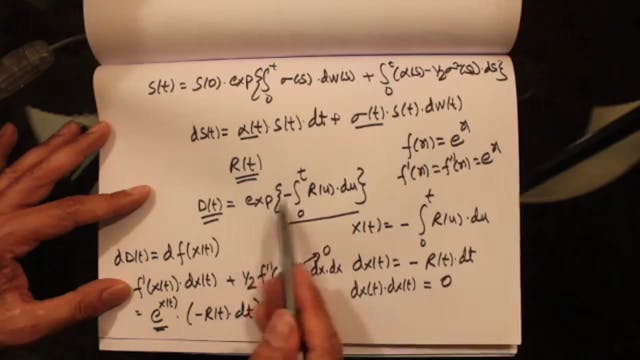 S(t) = S(0) · exp{∫₀ᵗ σ(s) · dW(s) + ∫₀ᵗ (α(s) - 1/2 σ²(s)) ds}
dS(t) = α(t) · S(t) · dt + σ(t) · S(t) · dW(t)
R(t)
f(x) = eˣ
f'(x) = f''(x) = eˣ
D(t) = exp{-∫₀ᵗ R(u) · du}
X(t) = - ∫₀ᵗ R(u) · du
dD(t) = df(X(t))
f'(X(t)) · dX(t) + 1/2 f''( dx·dx 0
dX(t) = - R(t) · dt
= e^X(t) · (-R(t) · dt)
dX(t) · dX(t) = 0